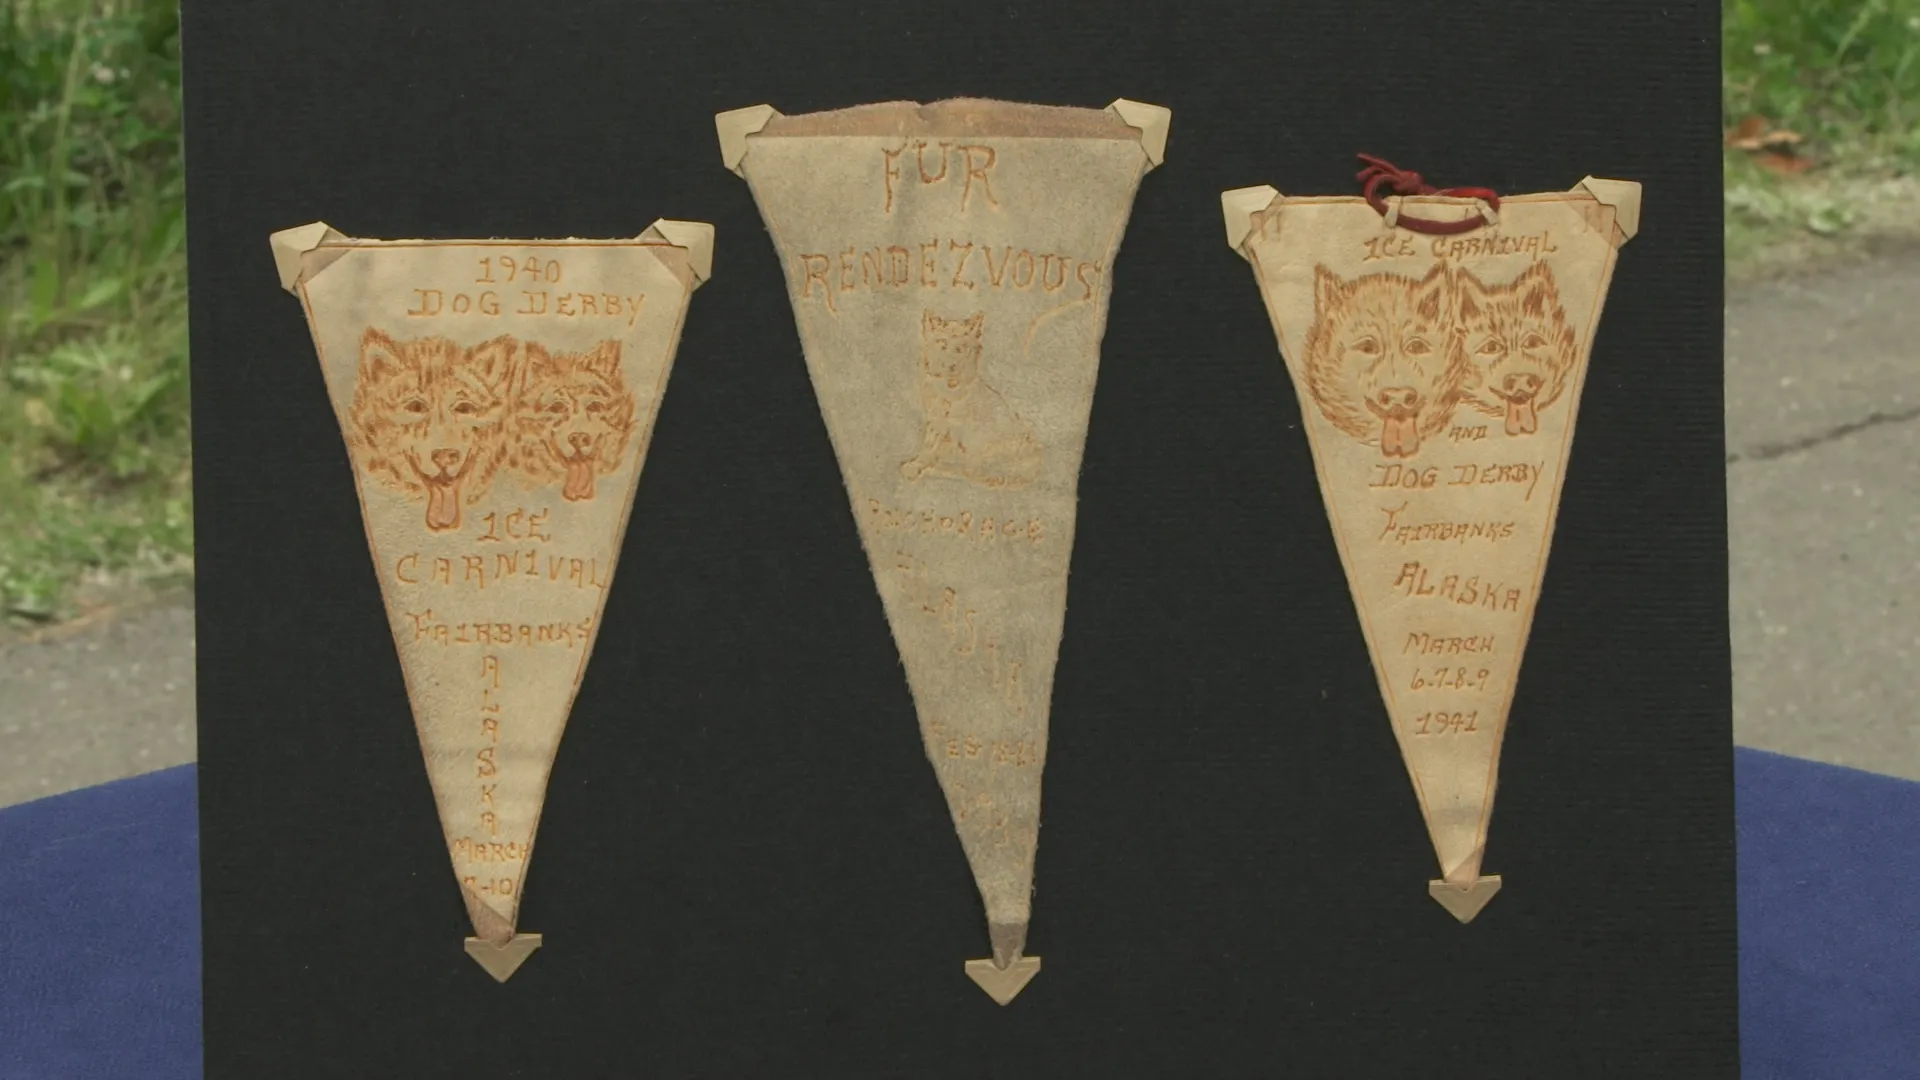 1940
DOG DERBY
ICE
CARNIVAL
FAIRBANKS
A
L
A
S
K
A
MARCH
7-10
FUR
RENDEZVOUS
ANCHORAGE
ALASKA
ICE CARNIVAL
AND
DOG DERBY
FAIRBANKS
ALASKA
MARCH
6-7-8-9
1941